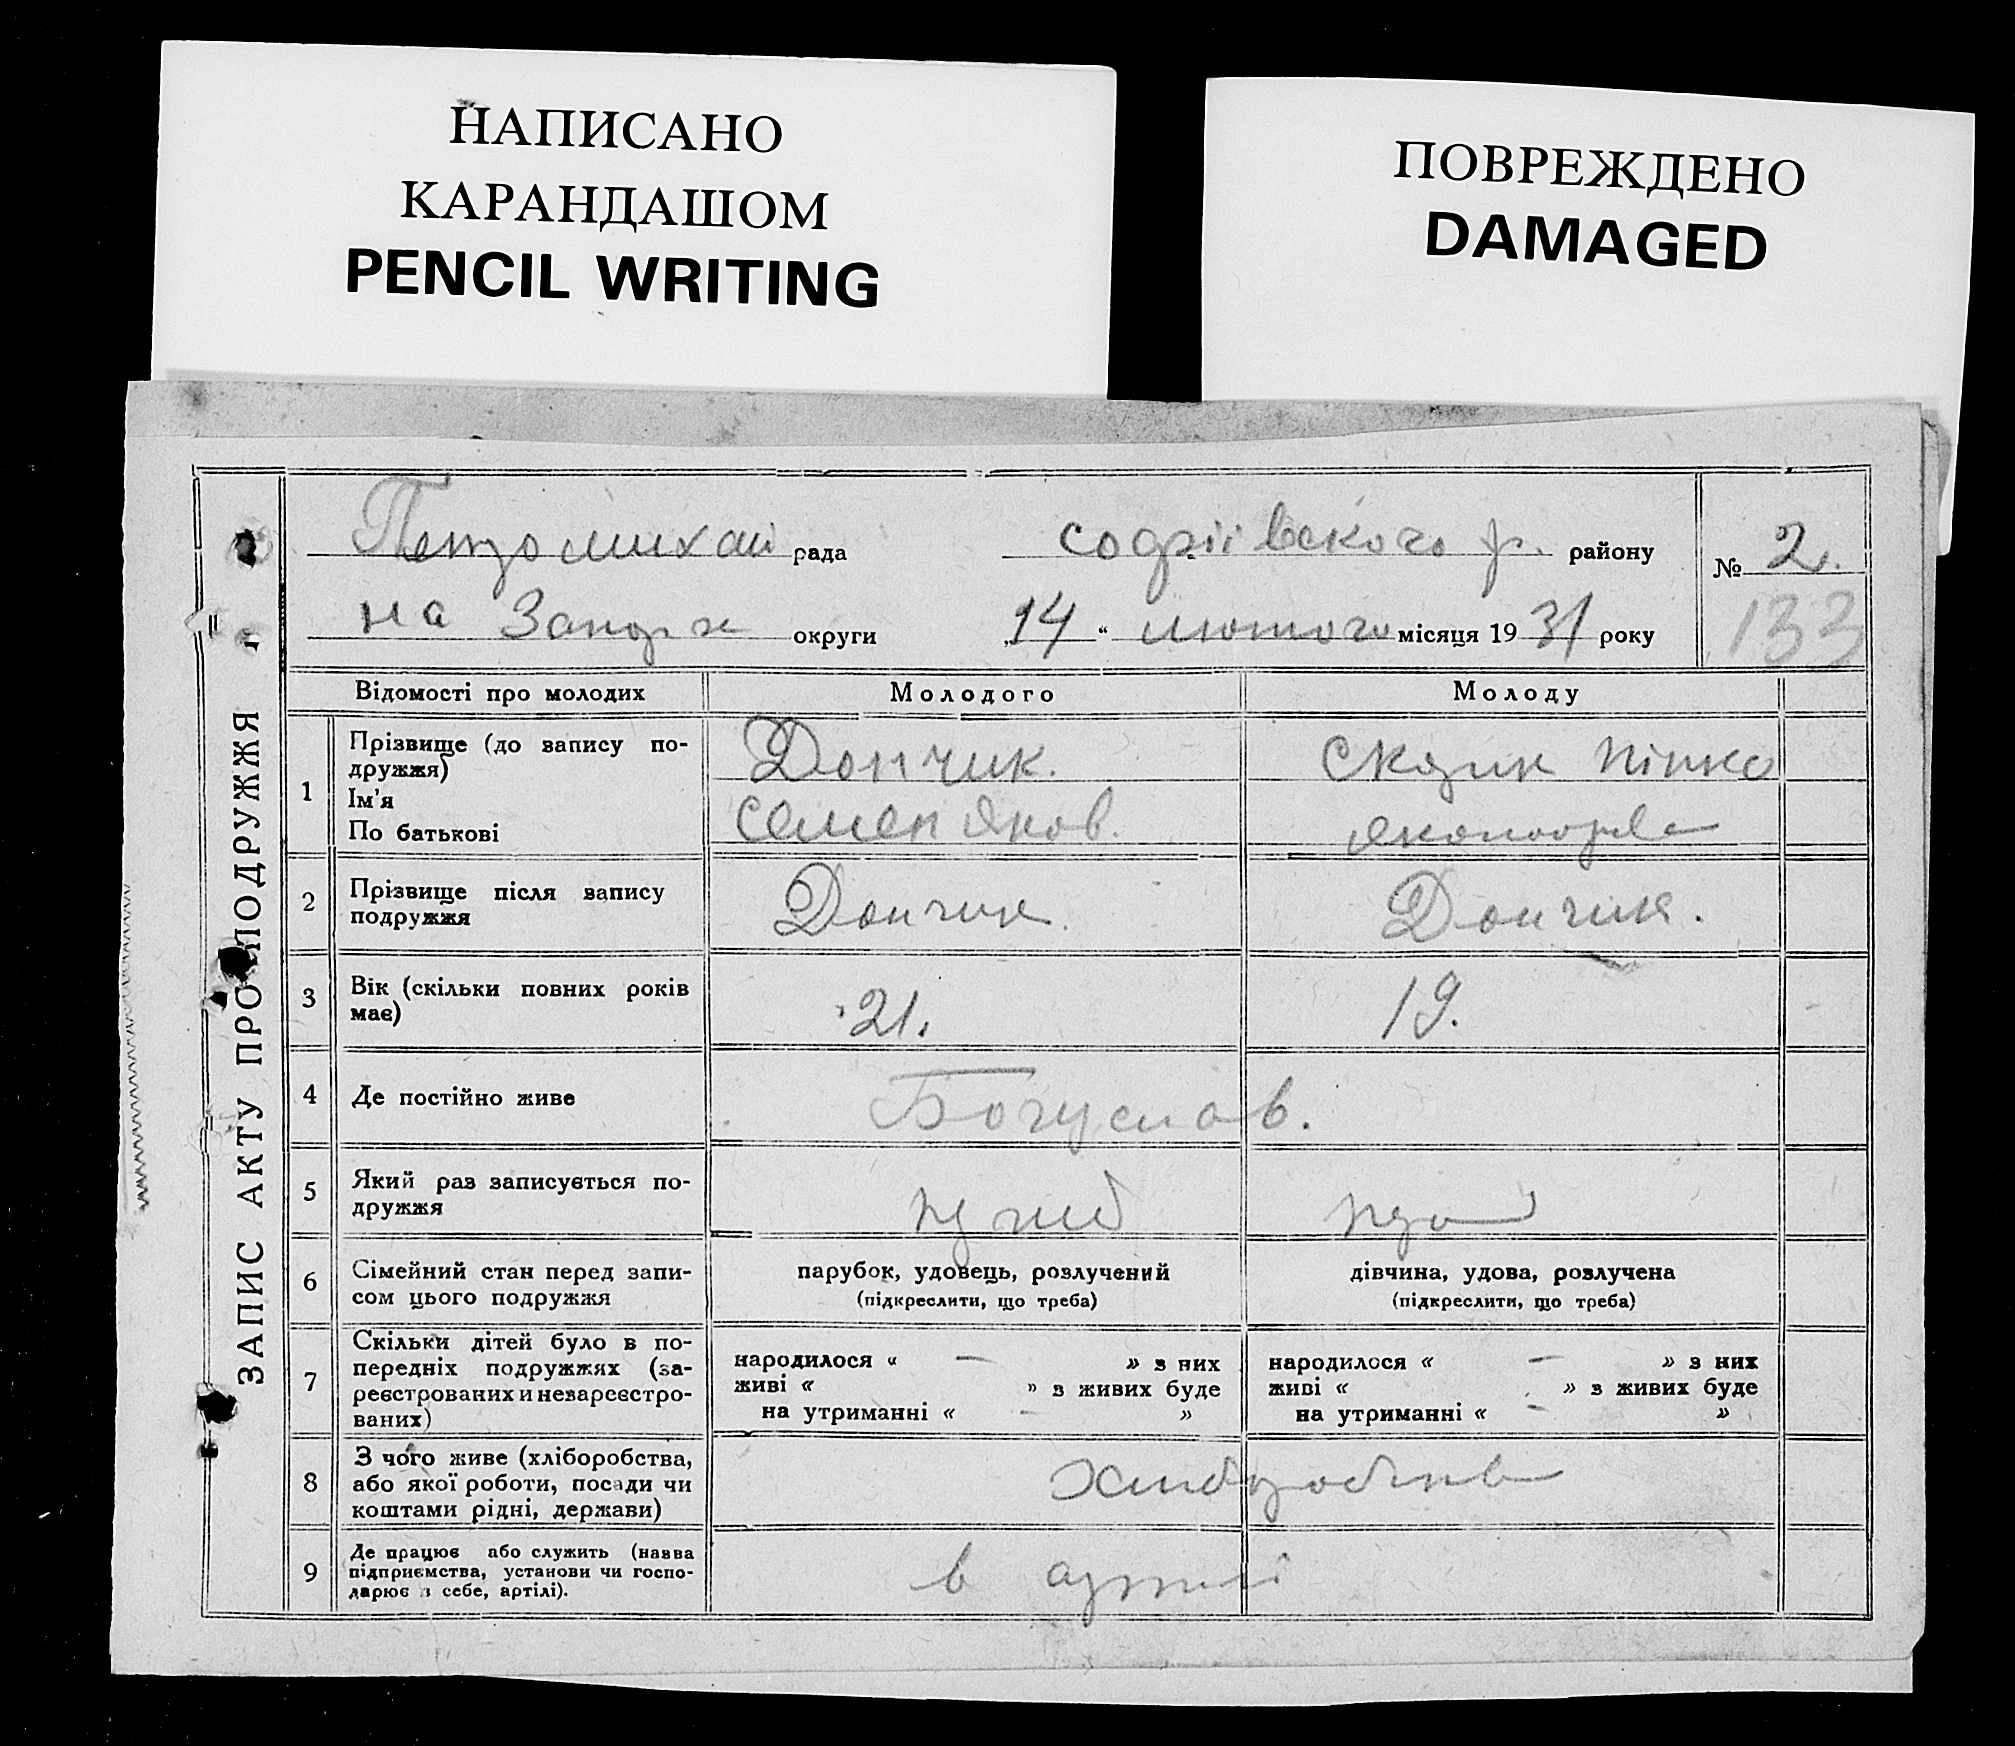 НАПИСАНО
КАРАНДАШОМ
PENCIL WRITING
ПОВРЕЖДЕНО
DAMAGED
ЗАПИС АКТУ ПРО ПОДРУЖЖЯ
Петромихай рада софиівского р. району № 2.
на Запорж округи „14“ лютого місяця 1931 року 133
Відомості про молодих Молодого Молоду
1 Прізвище (до запису по-
дружжя)
Ім'я
По батькові
Дончик.
Семен Яков.
2 Прізвище після запису
подружжя
Дончик. Дончик.
3 Вік (скільки повних років
має)
21. 19.
4 Де постійно живе Богуслав.
5 Який раз записується по-
дружжя
6 Сімейний стан перед запи-
сом цього подружжя
парубок, удовець, розлучений
(підкреслити, що треба)
дівчина, удова, розлучена
(підкреслити, що треба)
7 Скільки дітей було в по-
передніх подружжях (за-
реєстрованих и незареєстро-
ваних)
народилося « — » з них
живі « » з живих буде
на утриманні « — »
народилося « — » з них
живі « » з живих буде
на утриманні « — »
8 З чого живе (хліборобства,
або якої роботи, посади чи
коштами рідні, держави)
9 Де працює або служить (назва
підприємства, установи чи госпо-
дарює з себе, артілі).
в артілі